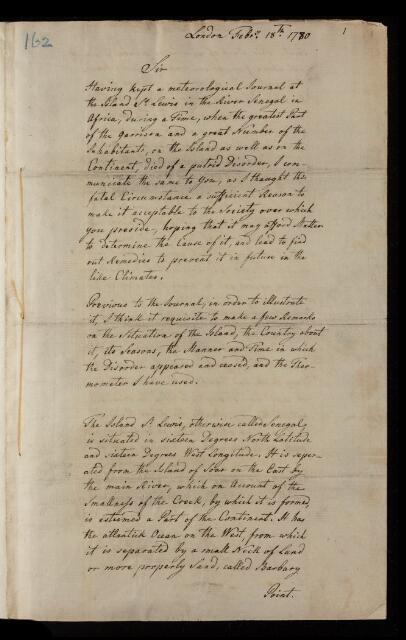 162
London Febr. 18th 1780
1
Sir
Having kept a meteorological Journal at
the Island St Lewis in the River Senegal in
Africa, during a Time, when the greatest Part
of the Garrison and a great Number of the
Inhabitants, on the Island as well as on the
Continent, died of a putrid Disorder, I com-
municate the same to You, as I thought this
fatal Circumstance a sufficient Reason to
make it acceptable to the Society over which
you preside, hoping that it may afford Matter
to determine the Cause of it, and lead to find
out Remedies to prevent it in future in the
like Climates.
Previous to the Journal, in order to illustrate
it, I think it requisite to make a few Remarks
on the Situation of the Island, the Country about
it, its Seasons, the Manner and Time in which
the Disorder appeared and ceased, and the Ther-
mometer I have used.
The Island St Lewis, otherwise called Senegal,
is situated in sixteen Degrees North Latitude
and sixteen Degrees West Longitude. It is sepa-
ated from the Island of Sour on the East by
the main River, which on Account of the
Smallness of the Creek, by which it is formed,
is esteemed a Part of the Continent. It has
the atlantick Ocean on the West, from which
it is separated by a small Neck of Land
or more properly Sand, called Barbary
Point.